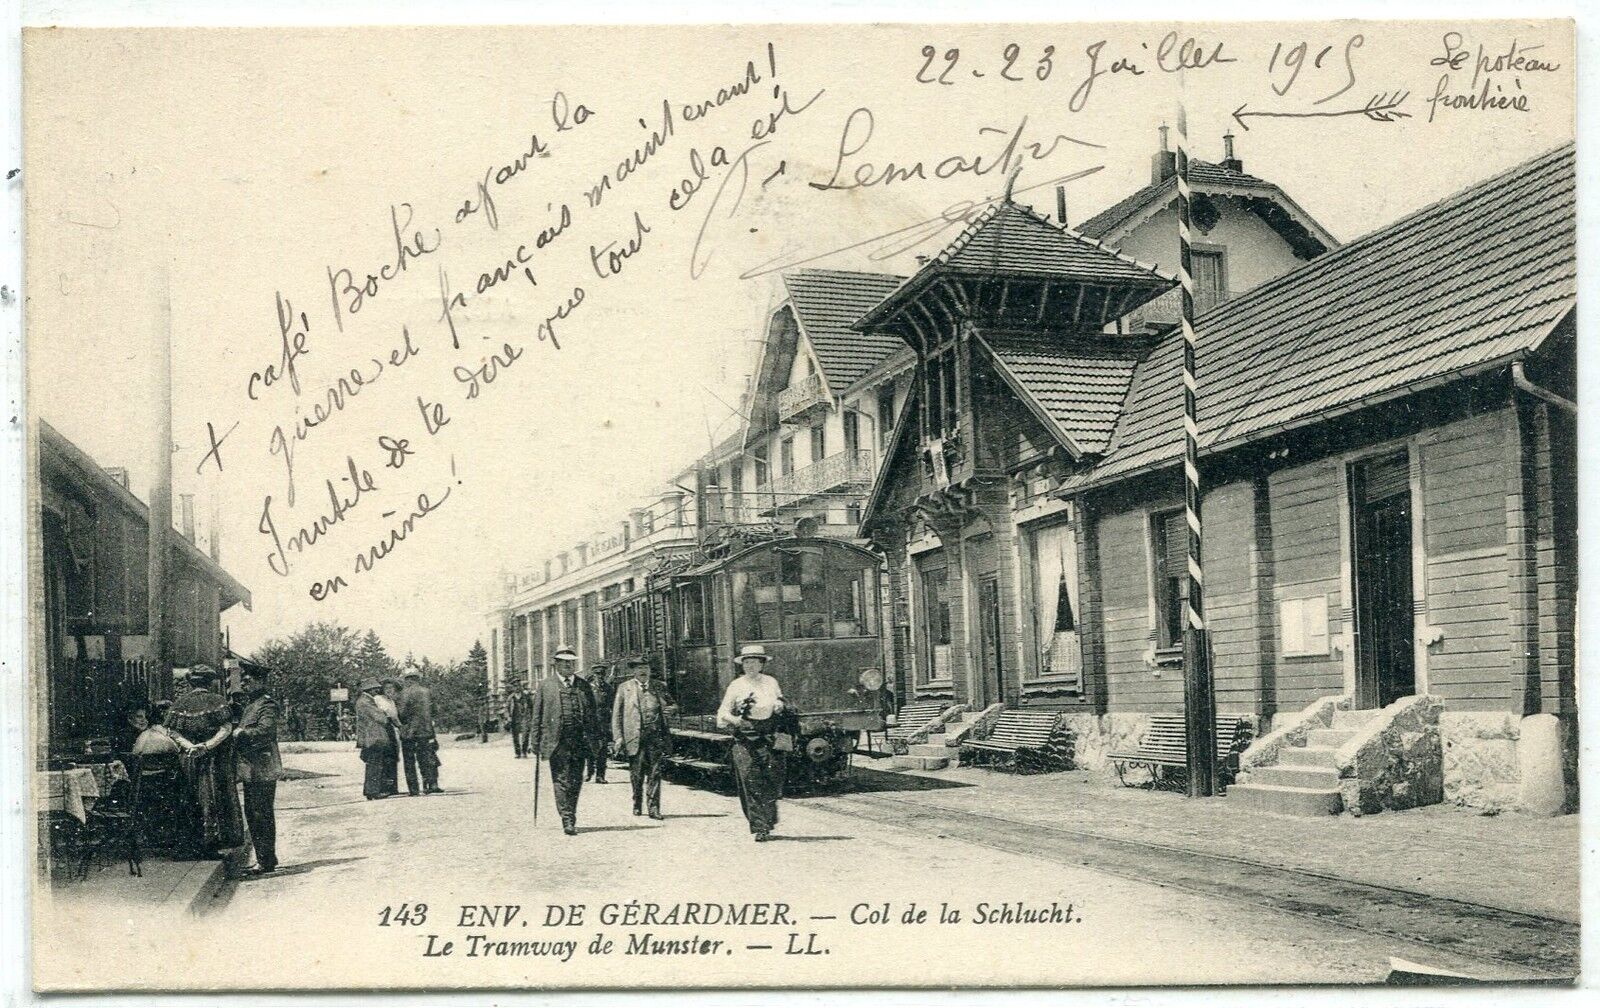 22-23 Juillet 1915
Le poteau
frontière
Lemaître
+ café Boche avant la
guerre et français maintenant!
Inutile de te dire que tout cela est
en ruine!
143 ENV. DE GÉRARDMER. — Col de la Schlucht.
Le Tramway de Munster. — LL.